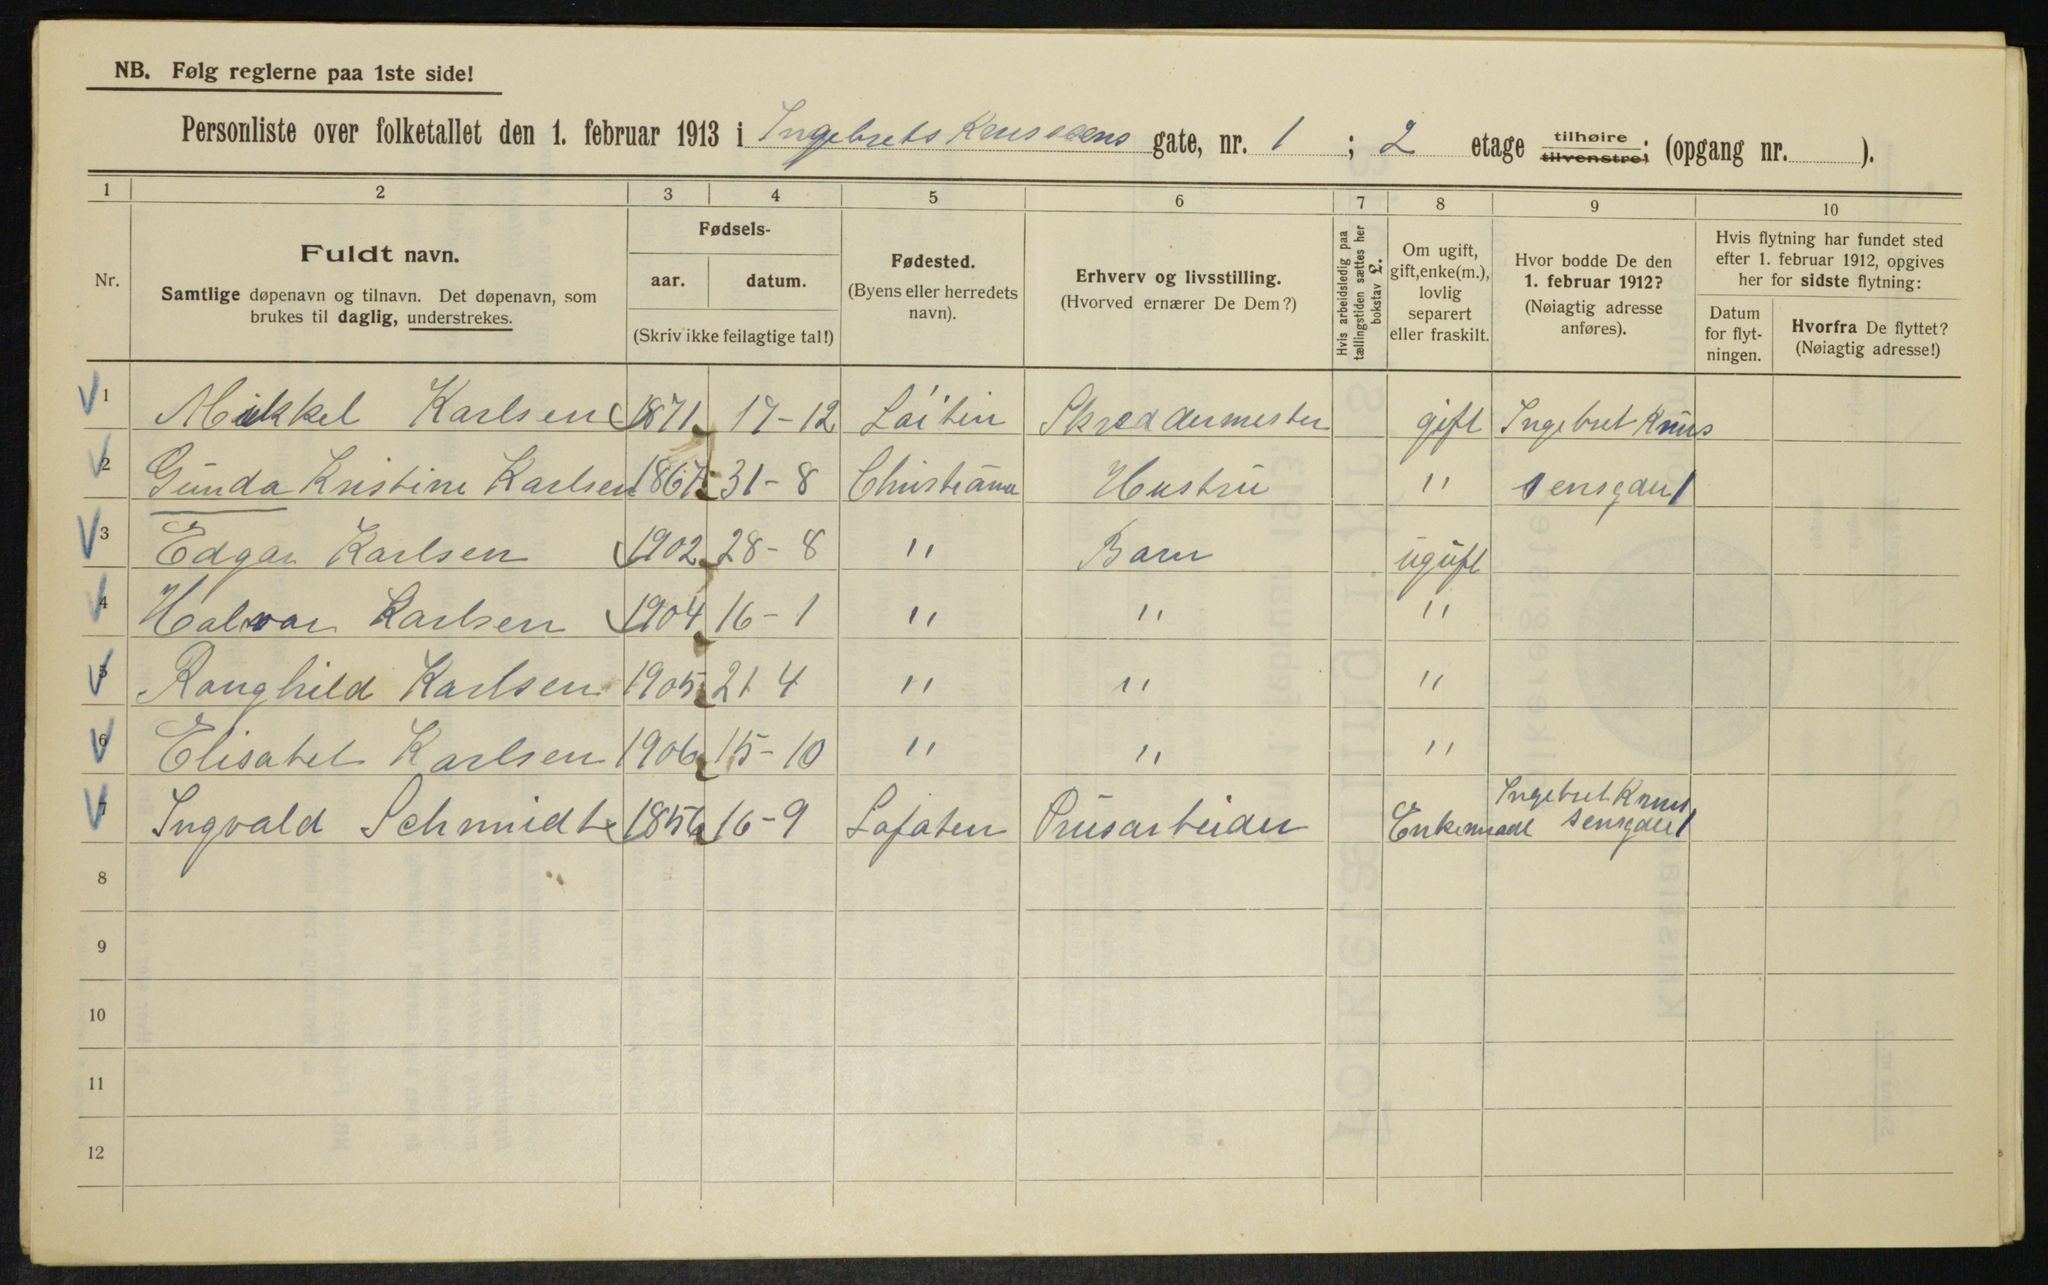 NB. Følg reglerne paa 1ste side!
Personliste over folketallet den 1. februar 1913 i Ingebrets Knussens gate, nr. 1 ; 2 etage tilhøire. tilvenstre. (opgang nr. ).
1 2 3 4 5 6 7 8 9 10
Nr.
Fuldt navn.
Samtlige døpenavn og tilnavn. Det døpenavn, som
brukes til daglig, understrekes.
Fødsels-
aar. datum.
(Skriv ikke feilagtige tal!)
Fødested.
(Byens eller herredets
navn).
Erhverv og livsstilling.
(Hvorved ernærer De Dem?)
Hvis arbeidsledig paa
tællingstiden sættes her
bokstav L.
Om ugift,
gift, enke(m.),
lovlig
separert
eller fraskilt.
Hvor bodde De den
1. februar 1912?
(Nøiagtig adresse
anføres).
Hvis flytning har fundet sted
efter 1. februar 1912, opgives
her for sidste flytning:
Datum
for flyt-
ningen.
Hvorfra De flyttet?
(Nøiagtig adresse!)
1 Mikkel Karlsen 1871 17-12 Løiten Skreddermester gift Ingebret Knus
2 Gunda Kristine Karlsen 1867 31-8 Christiania Hustru " sensgate 1
3 Edgar Karlsen 1902 28-8 " Barn ugift
4 Halvar Karlsen 1904 16-1 " " "
5 Ranghild Karlsen 1905 21 4 " " "
6 Elisabet Karlsen 1906 15-10 " " "
7 Ingvald Schmidt 1856 16-9 Lofoten Enkemand Ingebret Knus
sensgate 1
8
9
10
11
12